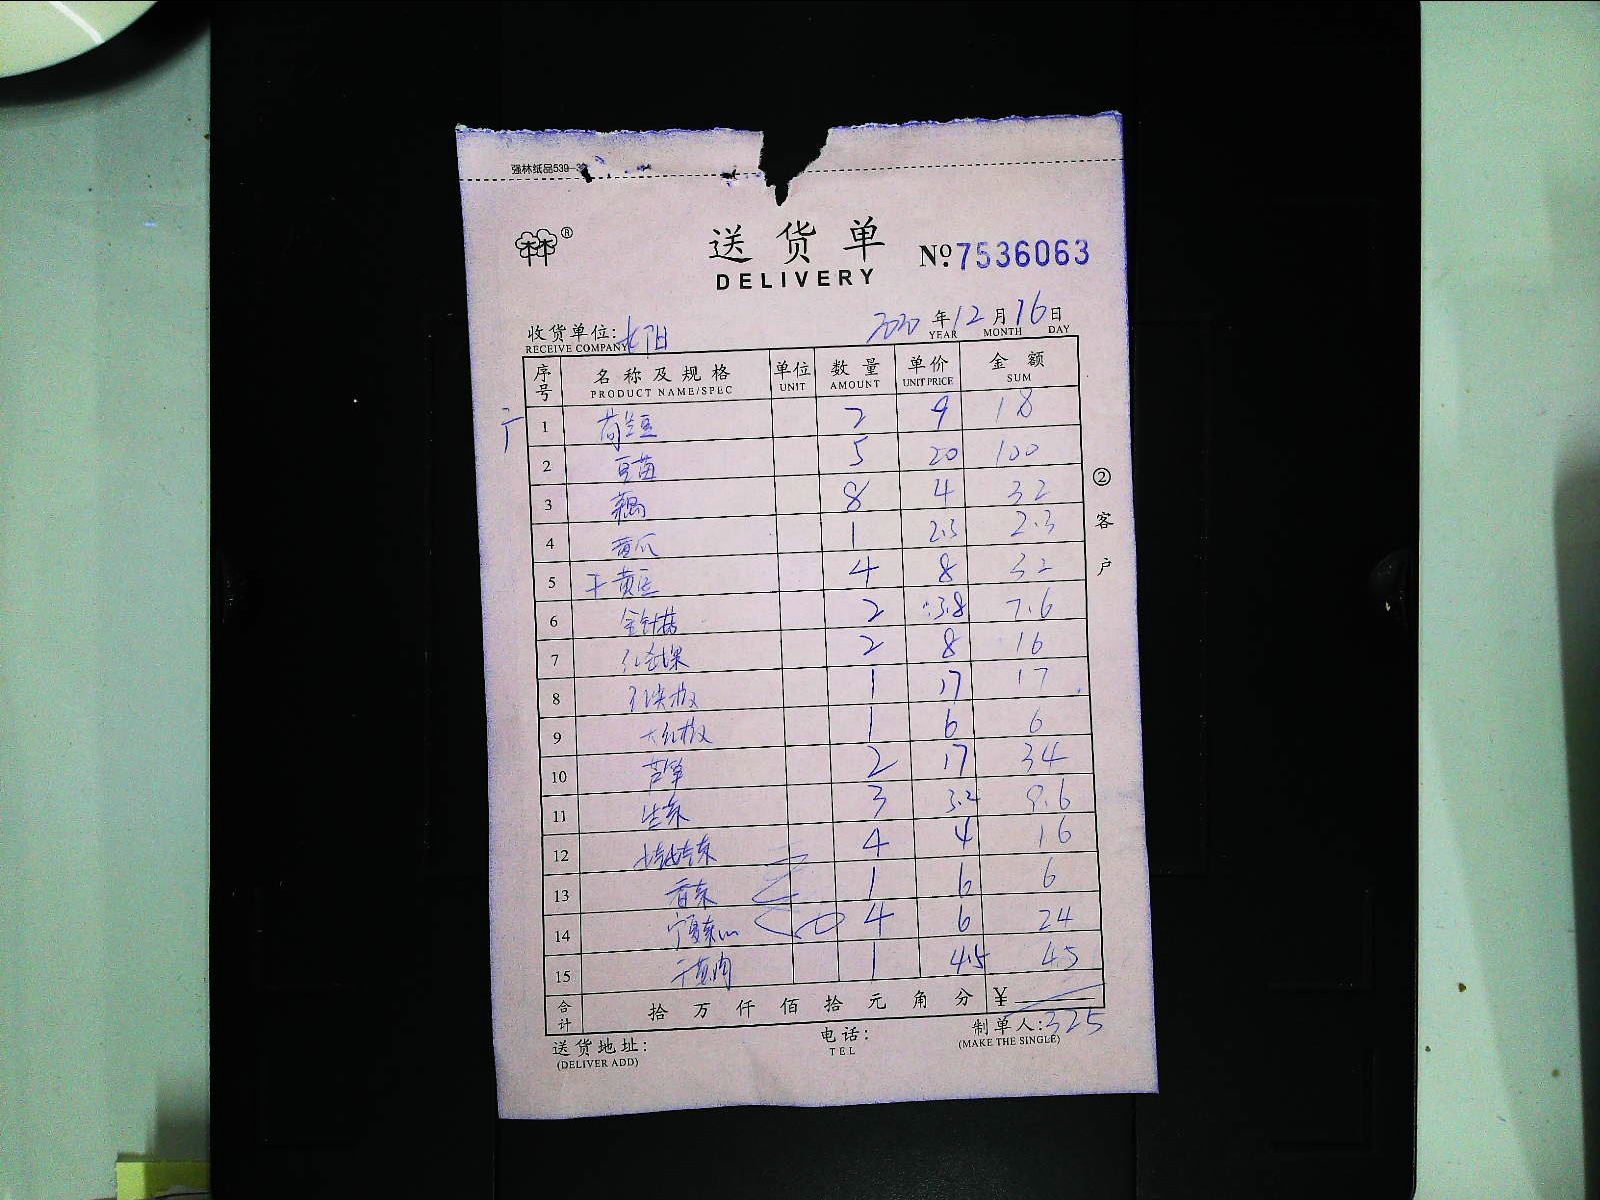 强林纸品539-3
林林® 送货单 №7536063
DELIVERY
收货单位: 2020年12月16日
RECEIVE COMPANY YEAR MONTH DAY
序号 名称及规格 单位 数量 单价 金额
PRODUCT NAME/SPEC UNIT AMOUNT UNIT PRICE SUM
1 荷兰豆 2 9 18
2 豆苗 5 20 100
3 藕 8 4 32
4 黄瓜 1 2.3 2.3
5 干黄豆 4 8 32
6 金针菇 2 3.8 7.6
7 2 8 16
8 1 17 17
9 大红椒 1 6 6
10 芦笋 2 17 34
11 生菜 3 3.2 9.6
12 4 4 16
13 香菜 1 6 6
14 宁夏菜心 4 6 24
15 1 4.5 4.5
合计 拾 万 仟 佰 拾 元 角 分 ¥
325
送货地址: 电话: 制单人:
(DELIVER ADD) TEL (MAKE THE SINGLE)
②客户